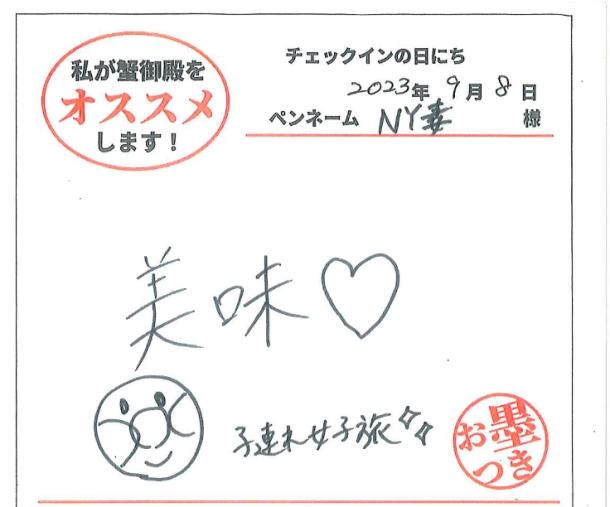 私が蟹御殿を
オススメ
します!
チェックインの日にち
2023年 9月 8日
ペンネーム NY妻 様
美味♡
子連れ女子旅✧✧
お墨
つき